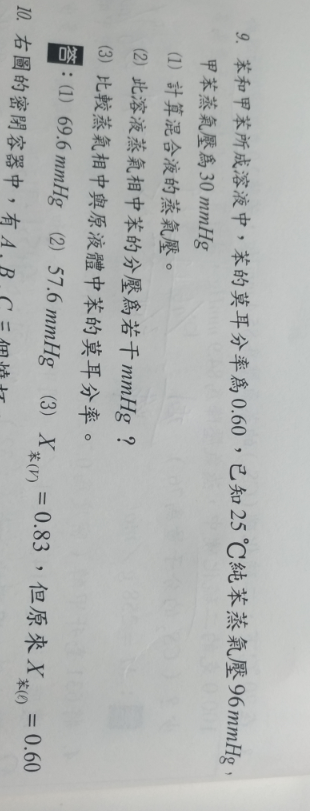 9. 苯和甲苯所成溶液中，苯的莫耳分率爲0.60，已知25℃純苯蒸氣壓96mmHg，
甲苯蒸氣壓爲30 mmHg
(1) 計算混合液的蒸氣壓。
(2) 此溶液蒸氣相中苯的分壓爲若干mmHg？
(3) 比較蒸氣相中與原液體中苯的莫耳分率。
答：(1) 69.6 mmHg (2) 57.6 mmHg (3) X苯(V) = 0.83，但原來X苯(ℓ) = 0.60
10. 右圖的密閉容器中，有A、B、C三個燒杯